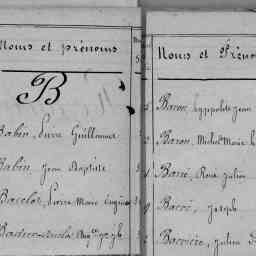 Noms et prénoms
B
Babin, Pierre Guillaume
Babin, Jean Baptiste
Bacelot, Pierre Marie Eugène
Noms et Préno
Baron, hyppolite Jean
Baron, Michel Marie
Barré, René Julien
Barré, Joseph
Barrière, Julien